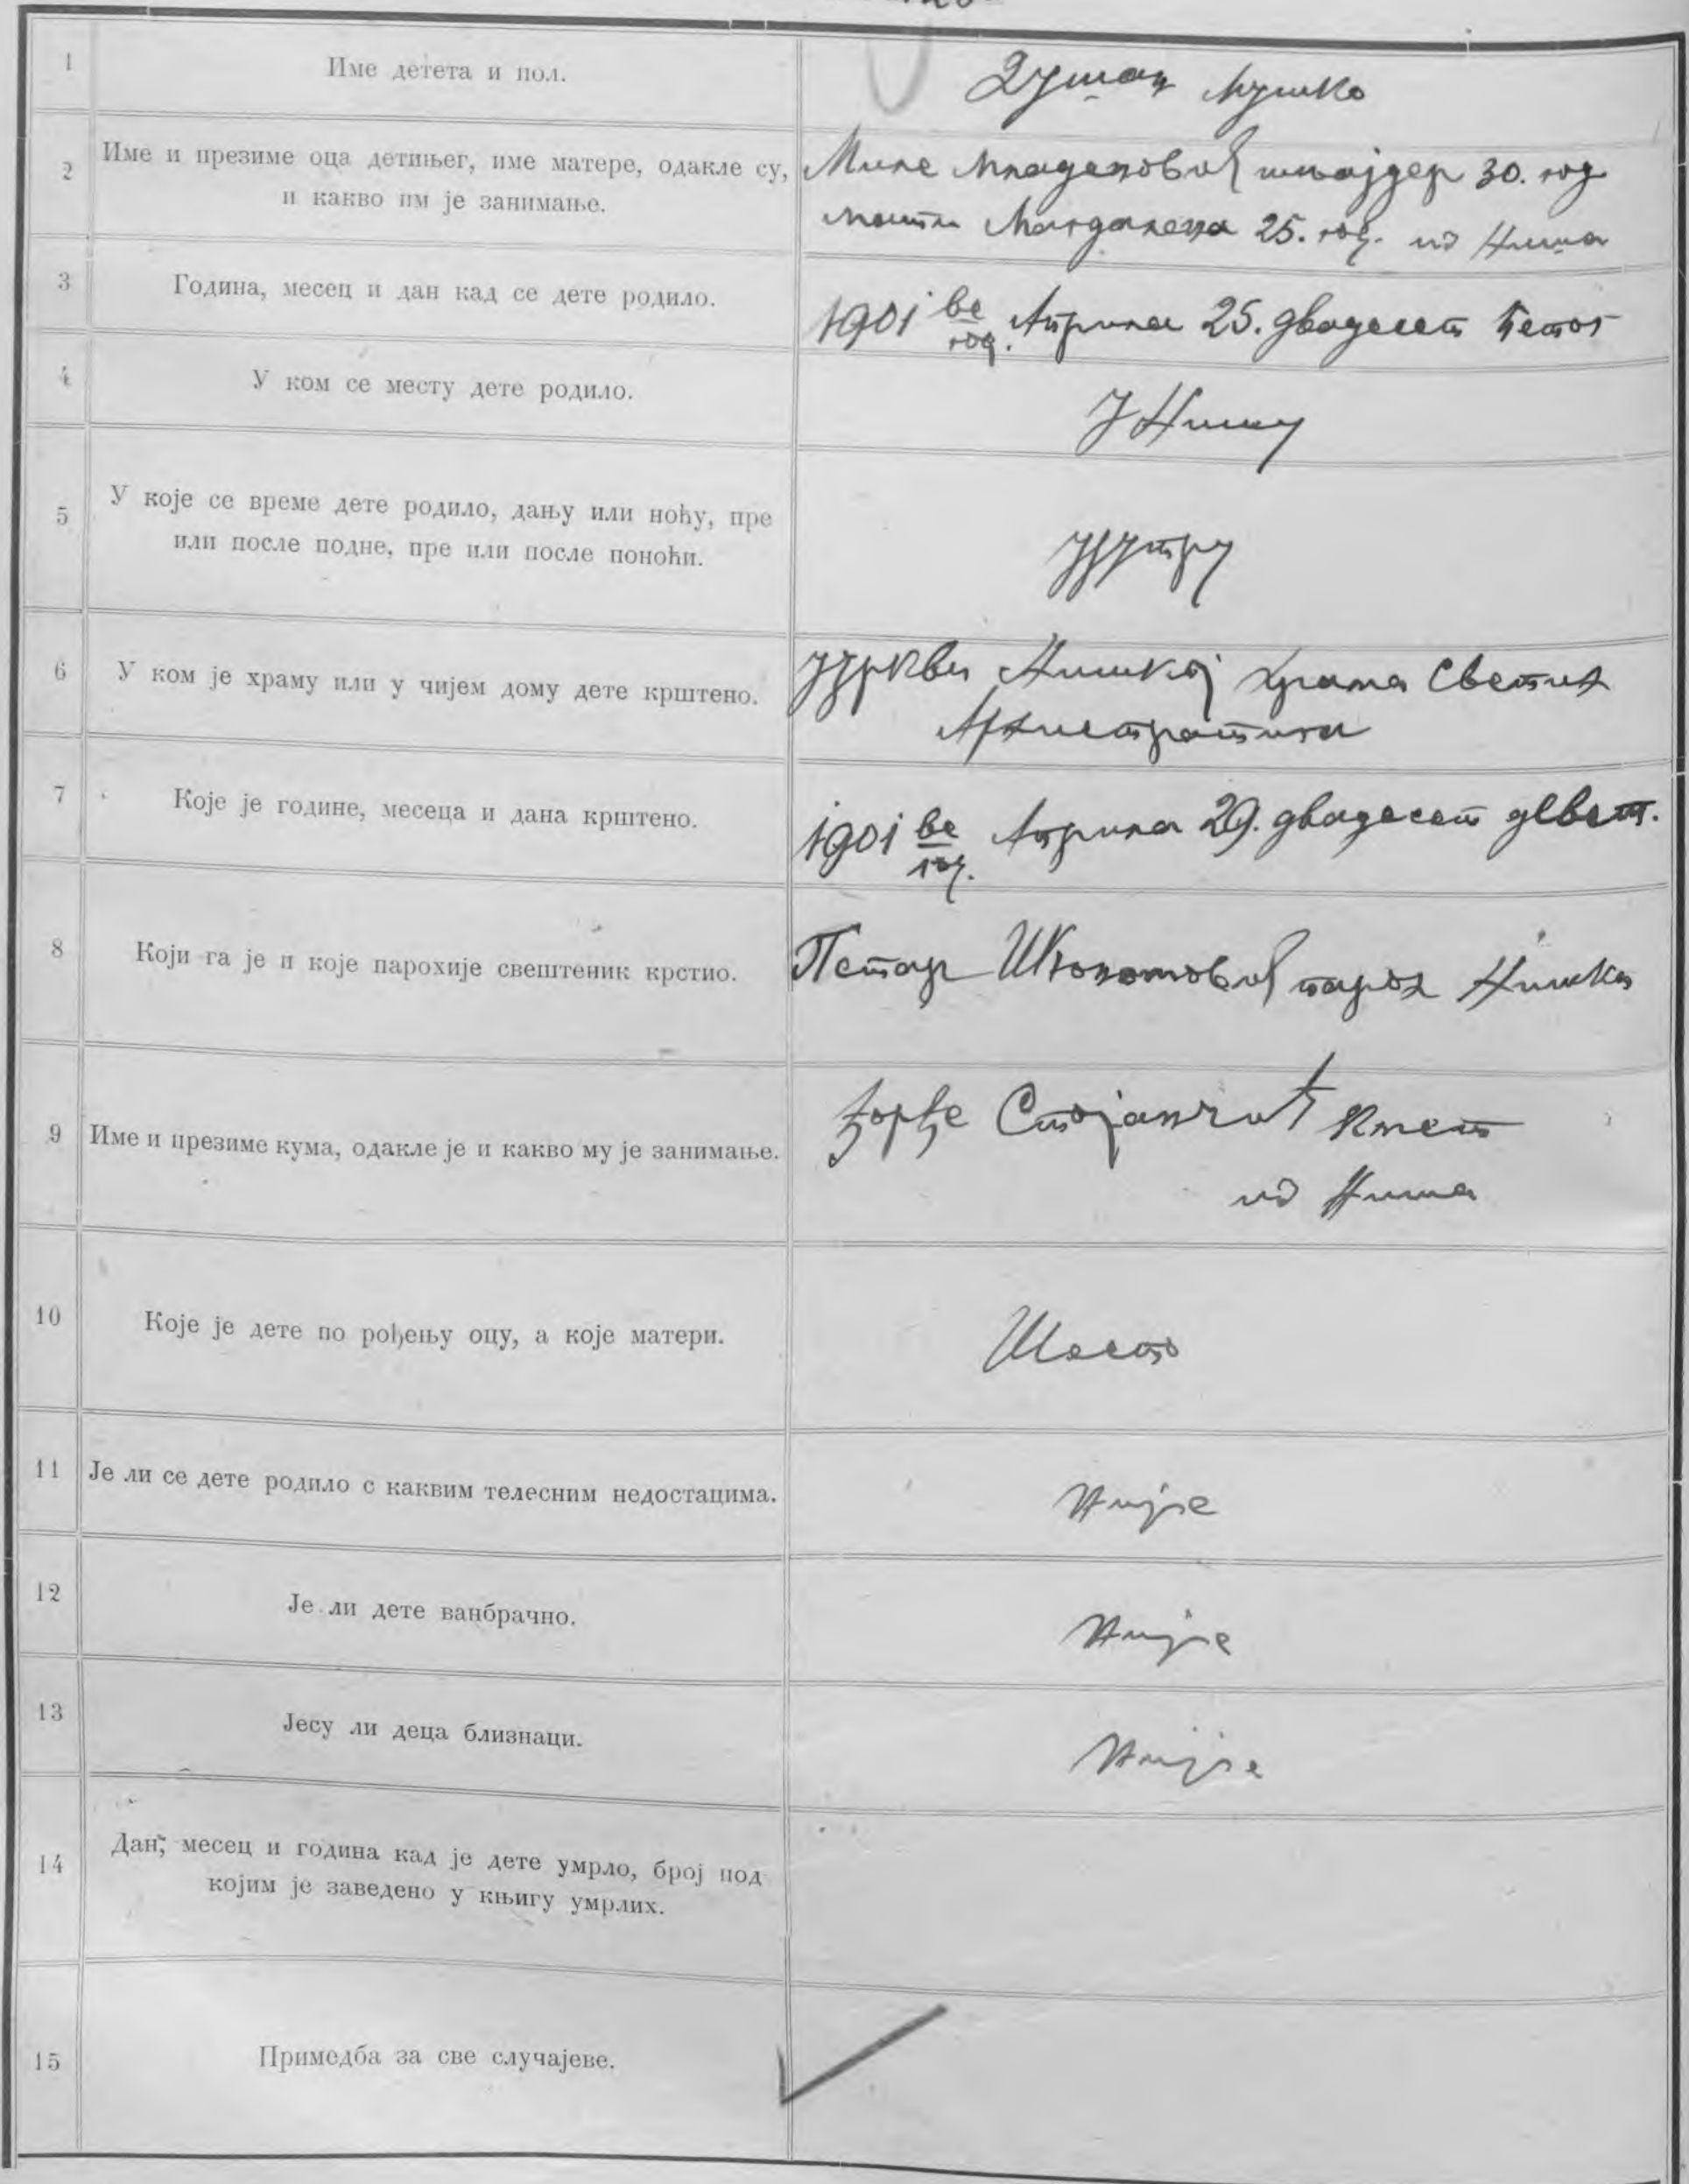 1 Име детета и пол. Душан мушко
2 Име и презиме оца детињег, име матере, одакле су, Миле Младеновић шнајдер 30. год
и какво им је занимање. мати Магдалена 25. год. из Ниша
3 Година, месец и дан кад се дете родило. 1901 ве год. Априла 25. двадесет петог
4 У ком се месту дете родило. У Нишу
5 У које се време дете родило, дању или ноћу, пре
или после подне, пре или после поноћи. ујутру
6 У ком је храму или у чијем дому дете крштено. у цркви Нишкој Храма Светих
Архистратига
7 Које је године, месеца и дана крштено. 1901 ве год. Априла 29. двадесет девет.
8 Који га је и које парохије свештеник крстио. Петар парох Нишки
9 Име и презиме кума, одакле је и какво му је занимање. Ђорђе Стојанчић кмет
из Ниша
10 Које је дете по рођењу оцу, а које матери. Шесто
11 Је ли се дете родило с каквим телесним недостацима. Није
12 Је ли дете ванбрачно. Није
13 Јесу ли деца близнаци. Није
14 Дан, месец и година кад је дете умрло, број под
којим је заведено у књигу умрлих.
15 Примедба за све случајеве.